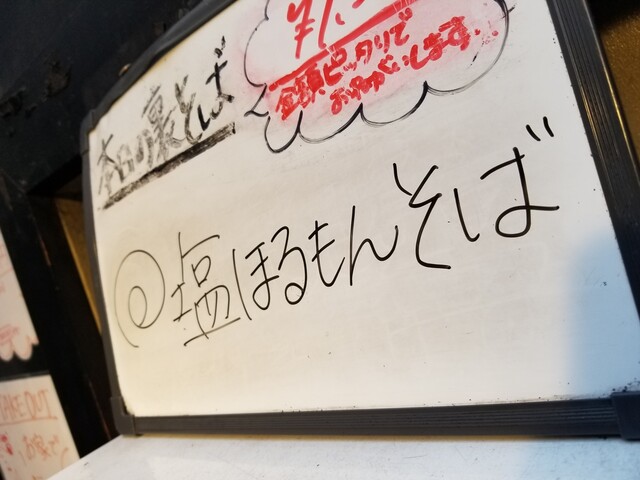 本日の裏そば
金額ピッタリで
お願いします..
◎塩ほるもんそば
TAKE OUT